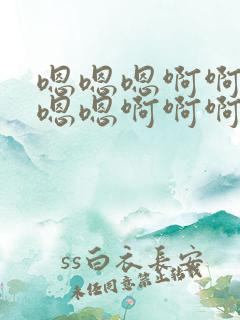 嗯嗯嗯啊啊
嗯嗯啊啊啊
ss白衣长安
未经同意禁止转载